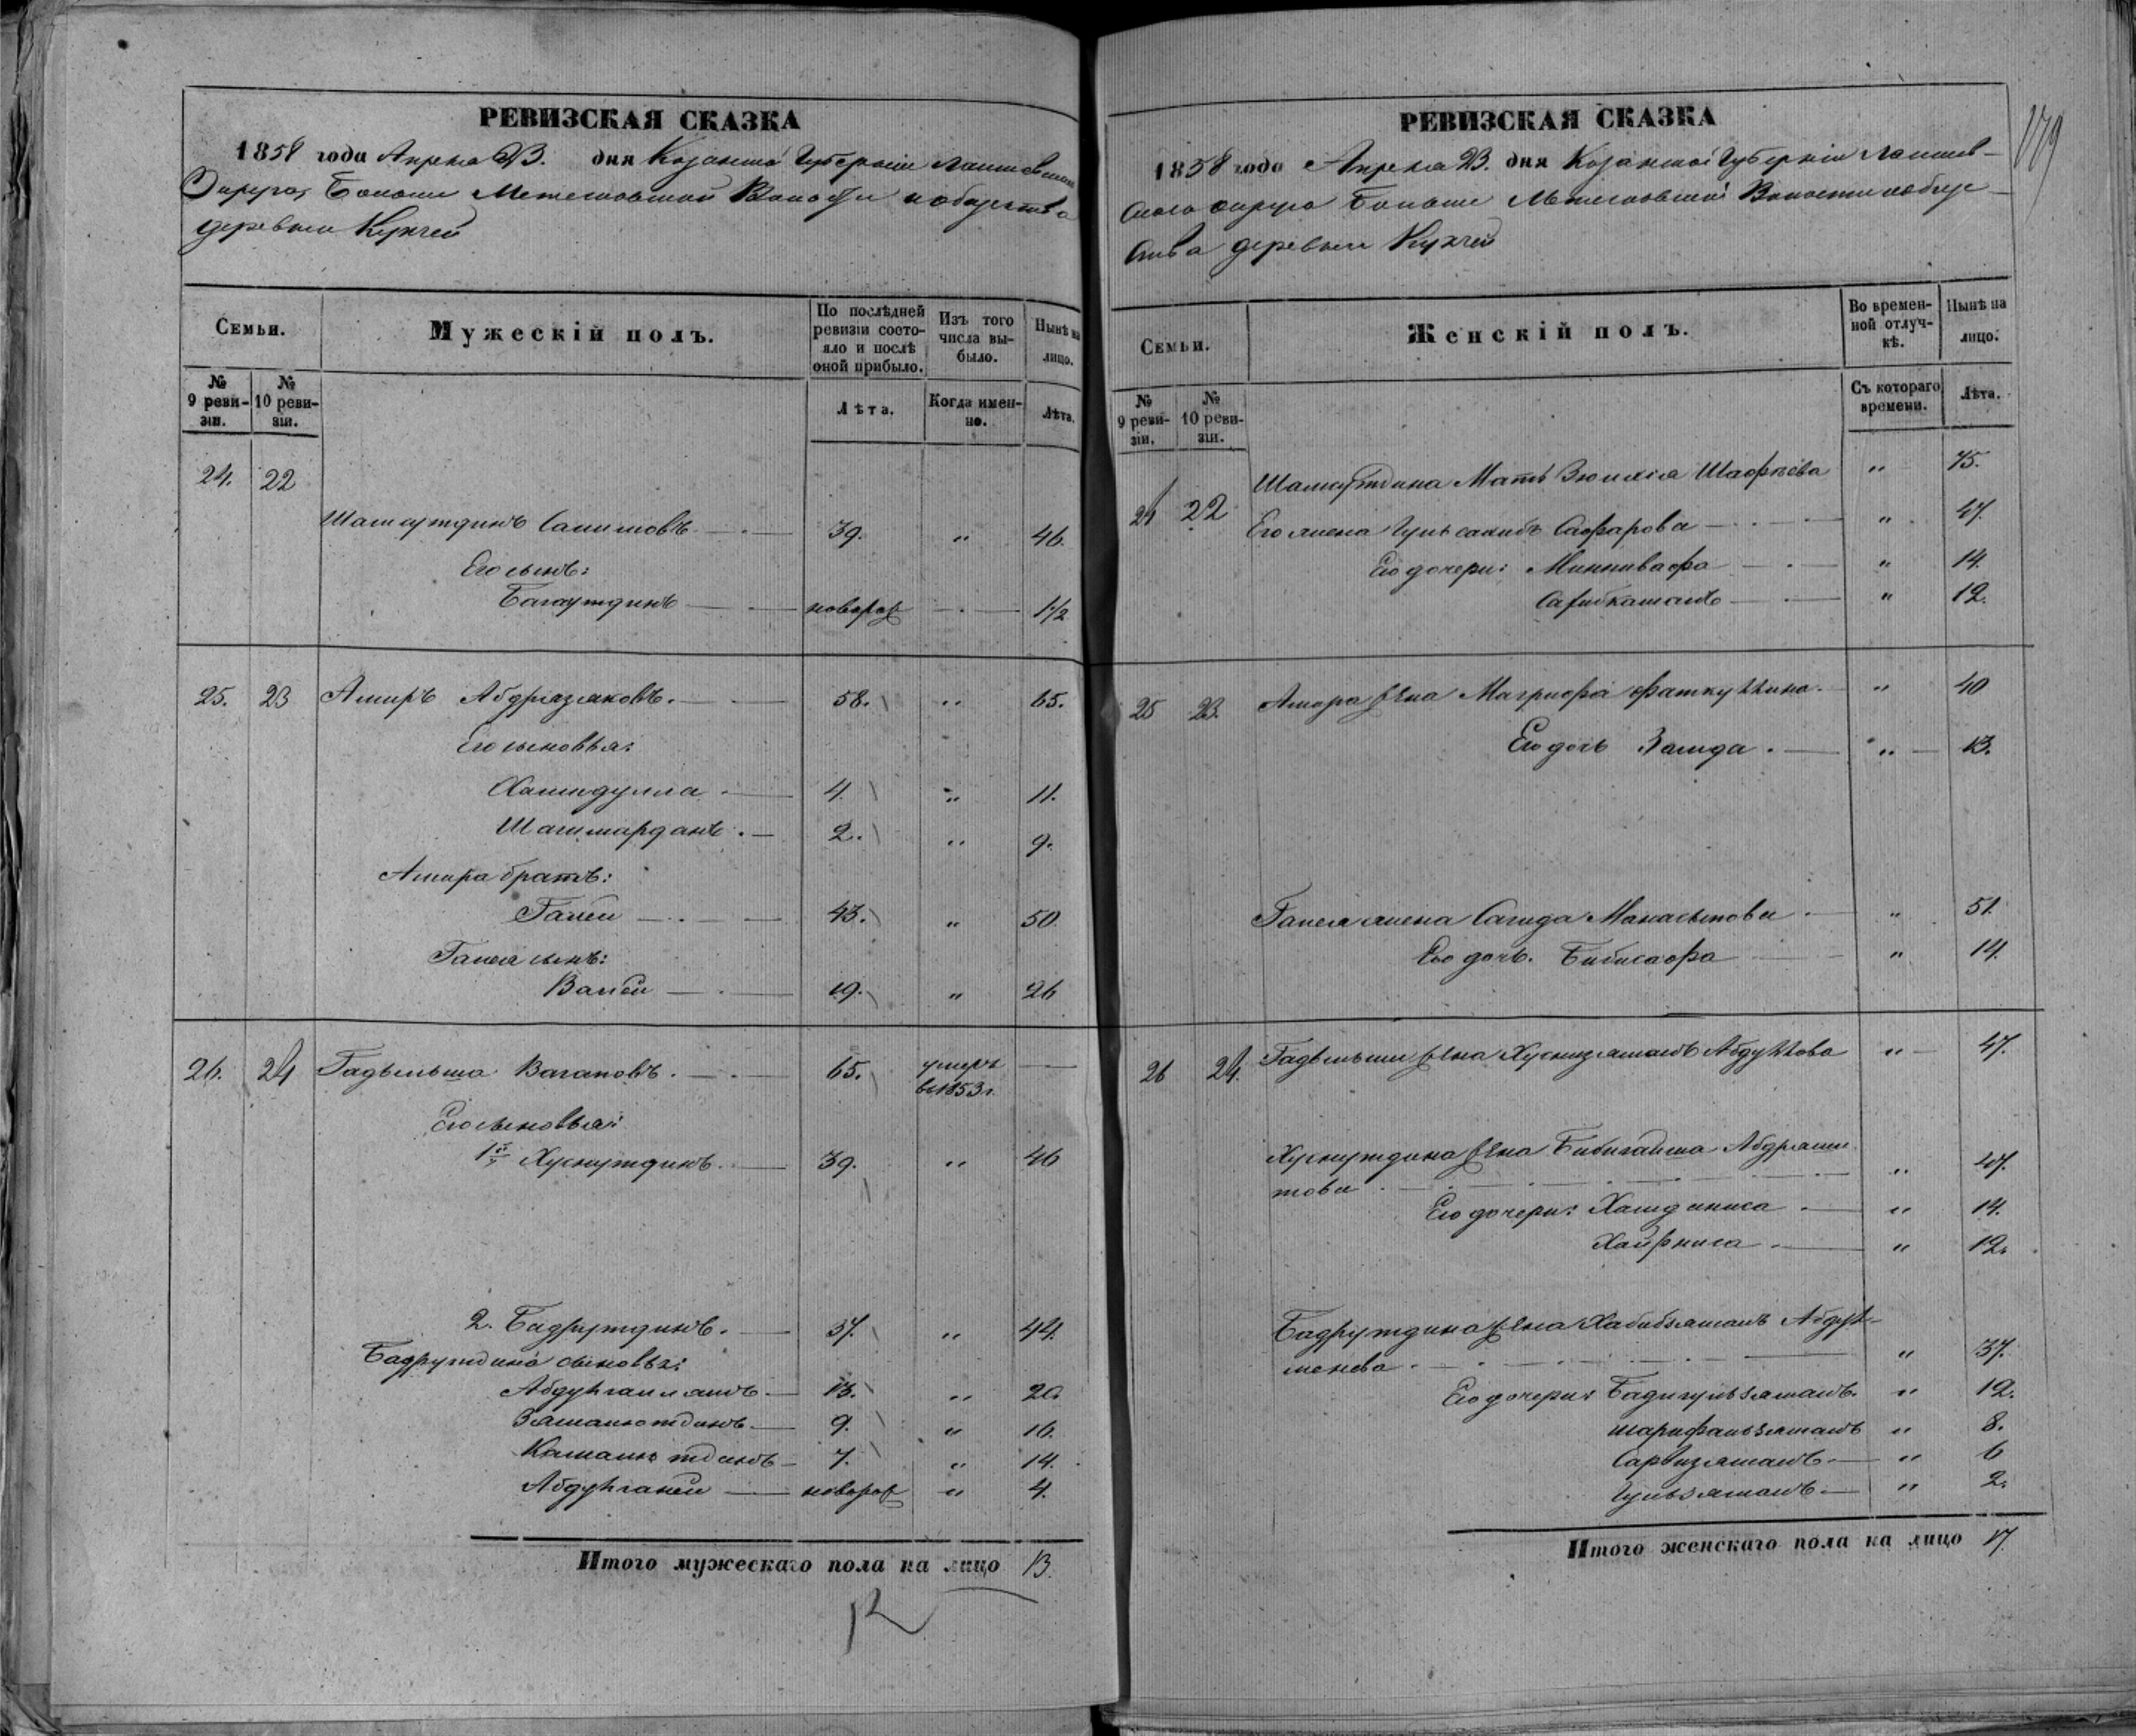 РЕВИЗСКАЯ СКАЗКА
1858 года Апреля 23. дня Казанской Губерніи Лаишевскаго
Округа, Больше Метесковской Волости общества
деревни Кукчей
Семьи.
Мужескій полъ.
По послѣдней ревизіи состояло и послѣ оной прибыло.
Изъ того числа выбыло.
Нынѣ на лицо.
№ 9 ревизіи.
№ 10 ревизіи.
Лѣта.
Когда именно.
Лѣта.
24. 22
Шамаутдинъ Салимовъ 39. " 46.
Его сынъ:
Багаутдинъ новорож 1/2
25. 23 Амиръ Абдрязяковъ. 58. " 65.
Его сыновья:
Хамидулла 4. " 11.
Шагимарданъ. 2. " 9.
Амира братъ:
Галей 43. " 50.
Галея сынъ:
Валей 19. " 26
26. 24 Гадельша Вагаповъ. 65. умеръ
въ 1853 г.
Его сыновья:
1й Хуснутдинъ. 39. " 46
2. Бадрутдинъ. 37. " 44.
Бадрутдина сыновья:
Абдулгаллямъ 13. " 20.
Замалютдинъ 9. " 16.
Камалютдинъ 7. " 14.
Абдулганей новорож " 4.
Итого мужескаго пола на лицо 13.
РЕВИЗСКАЯ СКАЗКА
179
1858 года Апреля 23. дня Казанской Губерніи Лаишев-
скаго округа Больше Метесковской Волости общес-
тва деревни Кукчей
Семьи.
Женскій полъ.
Во временной отлучкѣ.
Нынѣ на лицо.
№ 9 ревизіи.
№ 10 ревизіи.
Съ котораго времени.
Лѣта.
24 22 Шамаутдина Мать Шафѣева " 75.
Его жена Гульсахибъ Сафарова " 47.
Его дочери: Миннивафа " 14.
" 12.
25 23. Амира жена Магруфа Фаткуллина. " 40
Его дочь Замда. " 13.
Галея жена Сагида Манасыпова " 51.
Его дочь. Бибисафа " 14.
26 24. Гадельши жена Хуснизямалъ Абдуллова " 47.
Хуснутдина жена Бибигайша Абдряши-
това " 47.
Его дочери: Хамдиниса " 14.
Хайрниса " 12.
Бадрутдина жена Хабибзямалъ Абдул-
менева " 37.
Его дочери: Бадигульзямалъ. " 12.
Шарифальзямалъ " 8.
Сарвизямалъ " 6
Гульзямалъ " 2.
Итого женскаго пола на лицо 17.